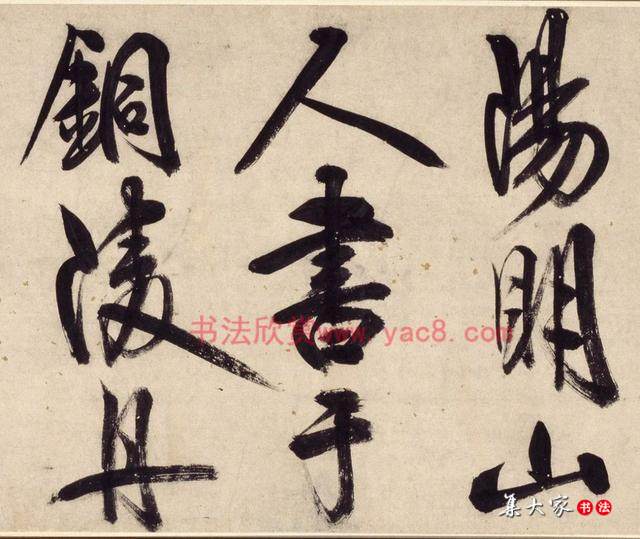 陽明山
人書于
銅陵舟
书法欣赏www.yac8.com
集大家书法